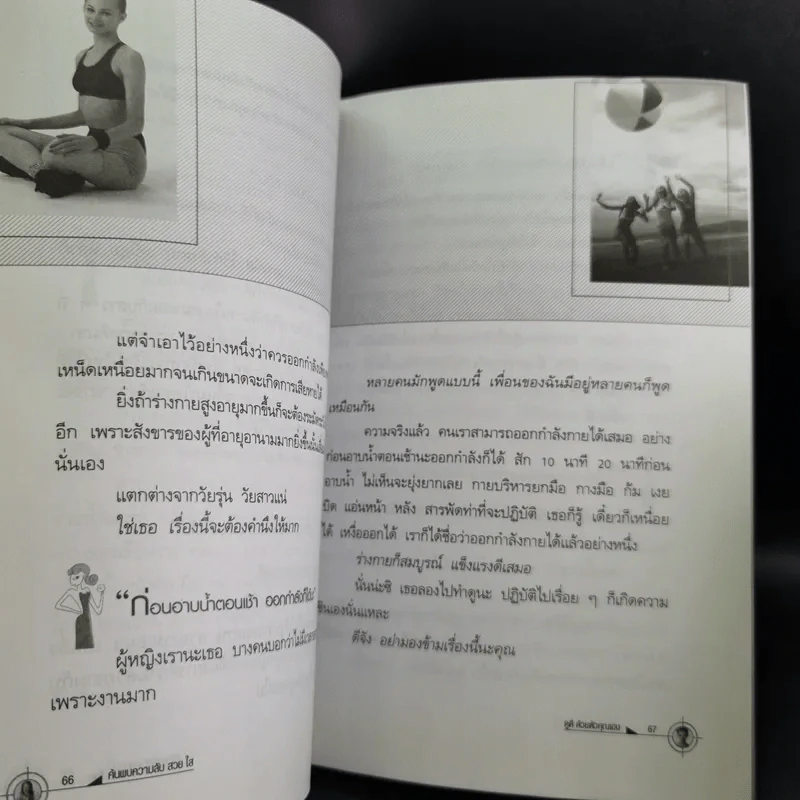 แต่จำเอาไว้อย่างหนึ่งว่าควรออกกำลัง
เหน็ดเหนื่อยมากจนเกินขนาดจะเกิดการเสียหายได้
ยิ่งถ้าร่างกายสูงอายุมากขึ้นก็จะต้อง
อีก เพราะสังขารของผู้ที่อายุอานามมากยิ่งขึ้นนั้น
นั่นเอง
แตกต่างจากวัยรุ่น วัยสาวแน่
ใช่เธอ เรื่องนี้จะต้องคำนึงให้มาก
“ก่อนอาบน้ำตอนเช้า ออกกำลังก็ได้”
ผู้หญิงเรานะเธอ บางคนบอกว่าไม่มี
เพราะงานมาก
66 ค้นพบความลับ สวย ใส
หลายคนมักพูดแบบนี้ เพื่อนของฉันมีอยู่หลายคนก็พูด
เหมือนกัน
ความจริงแล้ว คนเราสามารถออกกำลังกายได้เสมอ อย่าง
ก่อนอาบน้ำตอนเช้านะออกกำลังก็ได้ สัก 10 นาที 20 นาทีก่อน
อาบน้ำ ไม่เห็นจะยุ่งยากเลย กายบริหารยกมือ กางมือ ก้ม เงย
บิด แอ่นหน้า หลัง สารพัดท่าที่จะปฏิบัติ เธอก็รู้ เดี๋ยวก็เหนื่อย
ได้ เหงื่อออกได้ เราก็ได้ชื่อว่าออกกำลังกายได้แล้วอย่างหนึ่ง
ร่างกายก็สมบูรณ์ แข็งแรงดีเสมอ
นั่นน่ะซิ เธอลองไปทำดูนะ ปฏิบัติไปเรื่อย ๆ ก็เกิดความ
ชินเองนั่นแหละ
ดีจัง อย่ามองข้ามเรื่องนี้นะคุณ
ดูดี ด้วยตัวคุณเอง 67